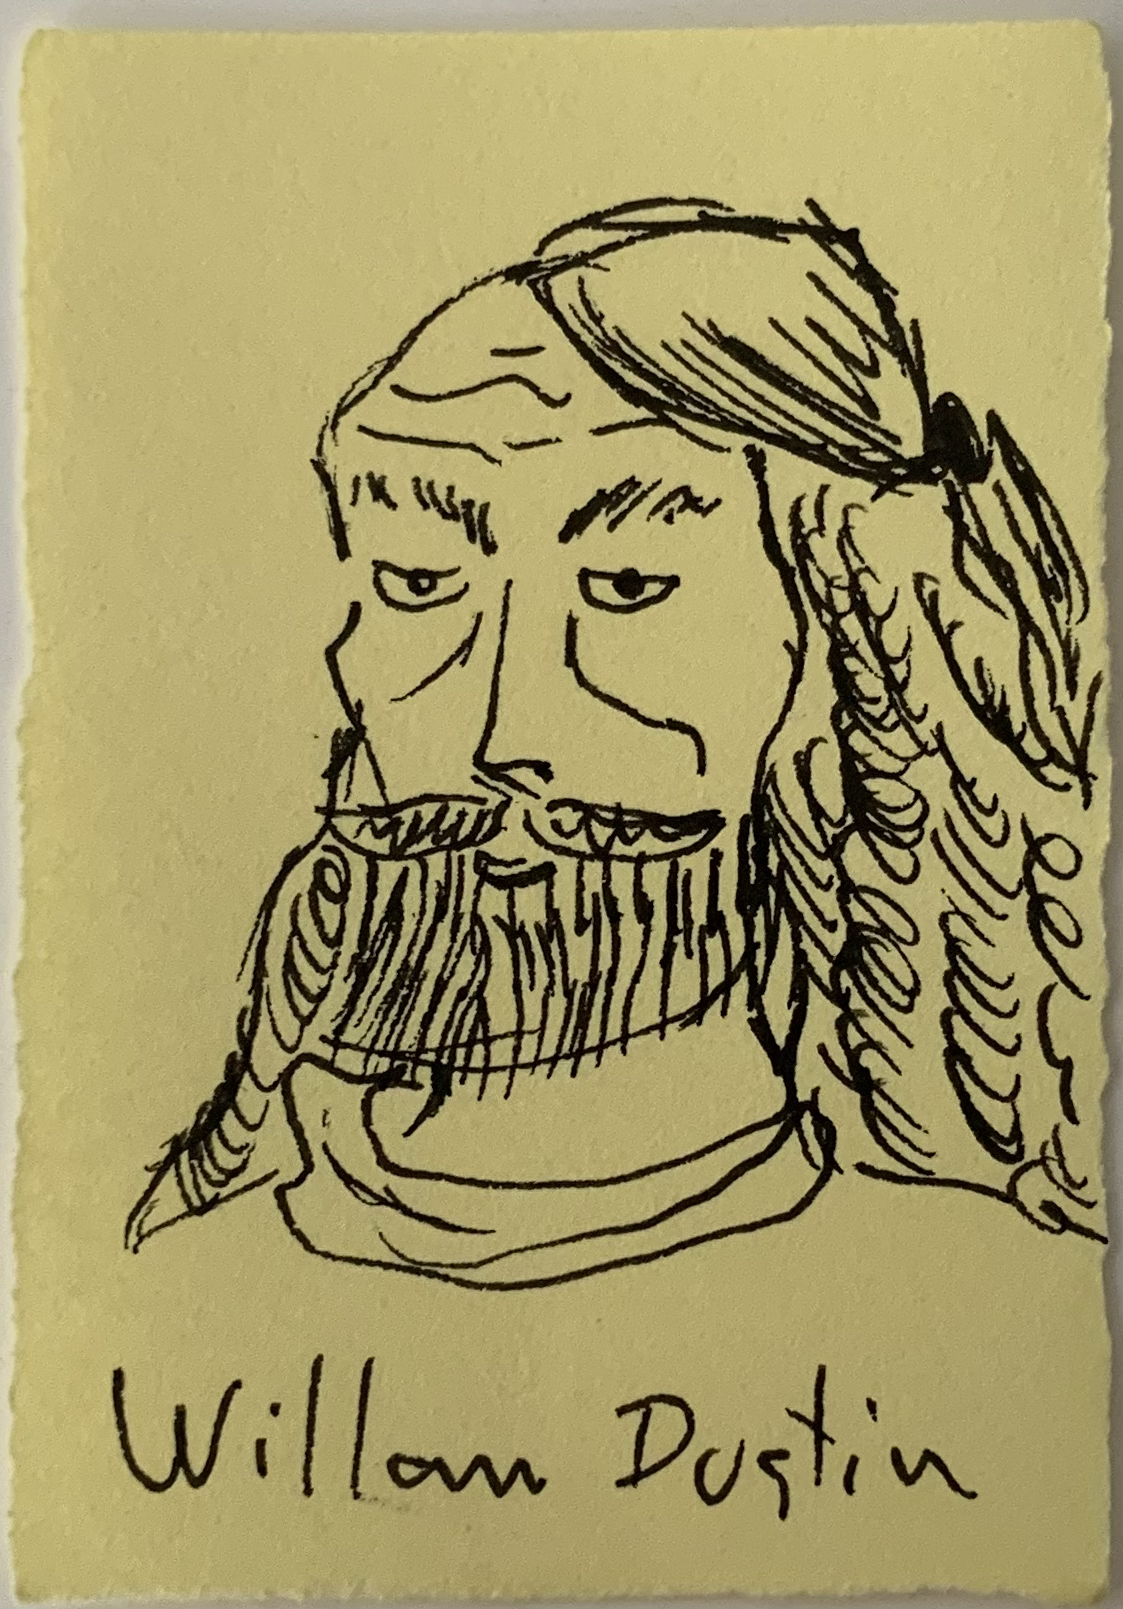 Willam Dustin